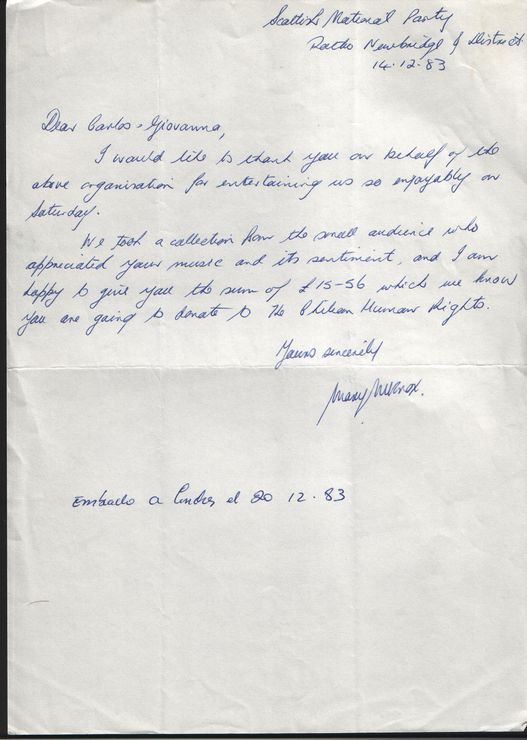 Scottish National Party
Ratho Newbridge & District
14.12.83
Dear Carlos & Giovanna,
I would like to thank you on behalf of the
above organisation for entertaining us so enjoyably on
Saturday.
We took a collection from the small audience who
appreciated your music and its sentiment, and I am
happy to give you the sum of £15-56 which we know
you are going to donate to the Chilean Human Rights.
Yours sincerely
Mary
a Londres el 20 12.83